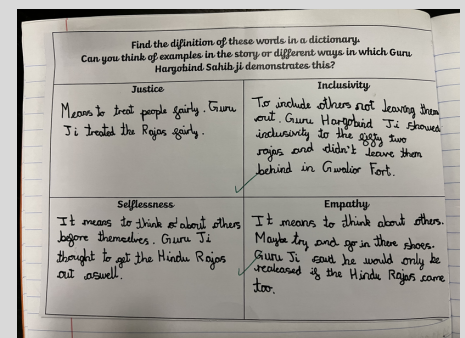 Find the difinition of these words in a dictionary.
Can you think of examples in the story or different ways in which Guru
Hargobind Sahib ji demonstrates this?
Justice
Means to treat people fairly. Guru
Ji treated the Rajas fairly.
Inclusivity
To include others not leaving them
out. Guru Hargobind Ji showed
inclusivity to the fifty two
rajas and didn't leave them
behind in Gwalior Fort.
Selflessness
It means to think about others
before themselves. Guru Ji
thought to get the Hindu Rajas
out aswell.
Empathy
It means to think about others.
Maybe try and go in there shoes.
Guru Ji said he would only be
realeased if the Hindu Rajas came
too.